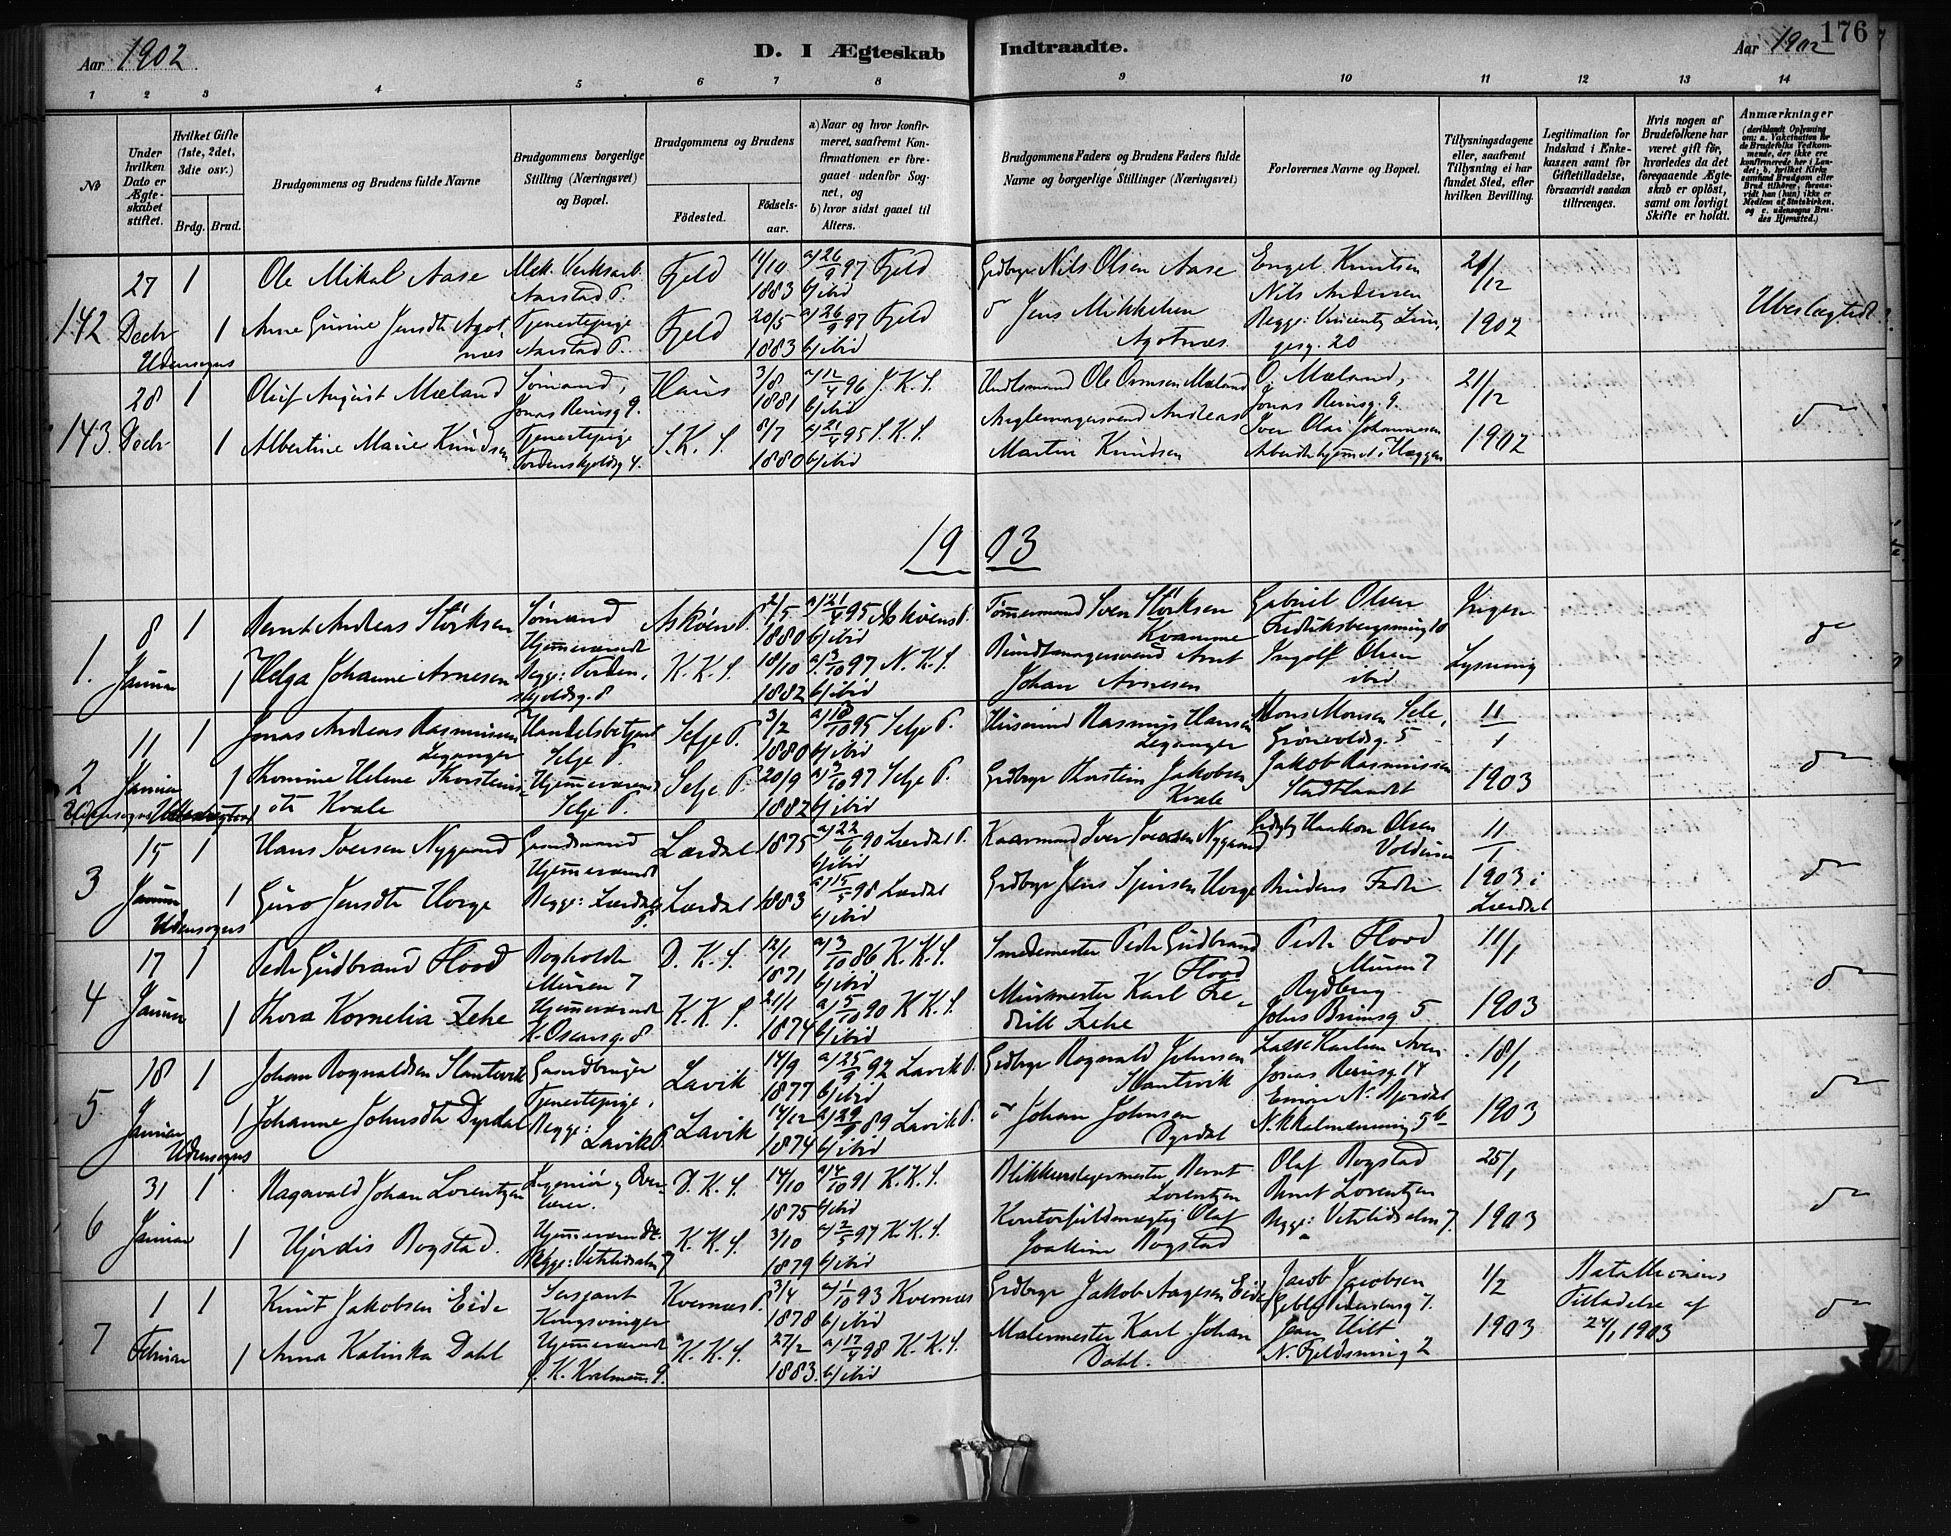 176
Aar 1902
D. I Ægteskab Indtraadte.
Aar 1902
1 2 3 4 5 6 7 8 9 10 11 12 13 14
№
Under hvilken Dato er Ægteskabet stiftet.
Hvilket Gifte (1ste, 2det, 3die osv.)
Brdg. Brud.
Brudgommens og Brudens fulde Navne
Brudgommens borgerlige Stilling (Næringsvei) og Bopæl.
Brudgommens og Brudens
Fødested.
Fødselsaar.
a) Naar og hvor konfirmeret, saafremt Konfirmationen er foregaaet udenfor Sognet, og
b) hvor sidst gaaet til Alters.
Brudgommens Faders og Brudens Faders fulde Navne og borgerlige Stillinger (Næringsvei)
Forlovernes Navne og Bopæl.
Tillysningsdagene eller, saafremt Tillysning ei har fundet Sted, efter hvilken Bevilling.
Legitimation for Indskud i Enkekassen samt for Giftetilladelse, forsaavidt saadan tiltrænges.
Hvis nogen af Brudefolkene har været gift før, hvorledes da det foregaaende Ægteskab er opløst, samt om lovligt Skifte er holdt.
Anmærkninger
(deriblandt Oplysning om: a. Vaccination for de Brudefolks Vedkommende, der ikke ere konfirmerede her i Landet; b. hvilket Kirkesamfund Brudgom eller Brud tilhører, forsaavidt han (hun) ikke er Medlem af Statskirken, og c. udensogns Brudes Hjemsted.)
142 27 Decbr Udensogns
1 Ole Mikal Aase Mek. Verksarb. Aarstad P. Fjeld 11/10 1883 a) 26/9 97 Fjeld b) ibid
Grdbrgr Nils Olsen Aase
Engel Knutsen
Nils Andersen
21/12 1902
Ubeslægtet
1 Anne Gurine Jensdtr Agotnæs Tjenestepige Aarstad P. Fjeld 20/5 1883 a) 26/9 97 Fjeld b) ibid
Jens Mikkelsen Agotnæs
Begge: Vincentz Lungesg. 20
143 28 Decbr
1 Oluf August Mæland Sømand, Jonas Reinsg. 9. Haus 3/8 1881 a) 12/4 96 J. K. S. b) ibid
Ole Ormsen Mæland
O. Mæland, Jonas Reinsg. 9.
21/12 1902
1 Albertine Marie Knudsen Tjenestepige Tordenskjoldsg 4. S. K. S. 8/7 1880 a) 21/4 95 S. K. S. b) ibid
Andreas Martin Knudsen
Iver Olai Johannesen
1903
1. 8 Januar
1 Bernt Andreas Störksen Sømand Askøens P. 2/5 1880 a) 21/4 95 Askøens P. b) ibid
Tømmermand Sven Störksen Kvamme
Gabriel Olsen
Ingen Lysning
1 Helga Johanne Arnesen Hjemmeværende Begge: Tordenskjoldsg. 8 K. K. S. 18/10 1882 a) 3/10 97 N. K. S. b) ibid
Bundtmagersvend Arnt Johan Arnesen
Ingolf Olsen ibid
2 11 Januar Udensogns
1 Jonas Andreas Rasmussen Leganger Handelsbetjent Selje P. Selje P. 3/2 1880 a) 13/10 95 Selje P. b) ibid
Husmand Rasmus Hansen Leganger
Mons Monsen Sele, Grönevoldsg. 5
11/1 1903
1 Thomine Helene Thorsteinsdtr Kvale Hjemmeværende Selje P. Selje P. 20/9 1882 a) 3/10 97 Selje P. b) ibid
Grdbrgr Thorstein Jakobsen Kvale
Jakob Rasmussen Stadtlandet
3 15 Januar Udensogns
1 Hans Iversen Nygaard Grundmand Lærdal 1875 a) 22/6 90 Lærdal P. b) ibid
Kaarmand Iver Iversen Nygaard
Haakon Olsen Voldum
11/1 1903 i Lærdal
1 Guro Jensdtr Horge Hjemmeværende Begge: Lærdals P. Lærdal 1883 a) 15/5 98 Lærdal b) ibid
Grdbrgr Jens Horge
Brudens Fader
4 17 Januar
1 Peder Gudbrand Flood Bogholder Muren 7 D. K. S. 12/1 1871 a) 3/10 86 K. K. S. b) ibid
Smedemester Peder Gudbrand Flood
Peder Flood Muren 7
11/1 1903
1 Thora Kornelia Zehe Hjemmeværende K. Oscarsg. 8 K. K. S. 21/1 1874 a) 5/10 90 K. K. S. b) ibid
Murmester Karl Fredrik Zehe
Rydberg Johs Bruunsg 5
5 18 Januar Udensogns
1 Johan Rognaldsen Slantevik Gaardbruger Lavik 14/9 1877 a) 25/9 92 Lavik P. b) ibid
Grdbrgr Rognald Johnsen Slantevik
Jonas Reinsg 14
18/1 1903
1 Johanne Johnsdtr Dyrdal Tjenestepige, Begge: Lavik P. Lavik 14/12 1874 a) 29/9 89 Lavik P. b) ibid
Johan Johnsen Dyrdal
N. Kkalmenning 5b
6 31 Januar
1 Ragnvald Johan Lorentzen D. K. S. 14/10 1875 a) 4/10 91 K. K. S. b) ibid
Blikkenslagermester Bernt Lorentzen
Olaf Rogstad
Bernt Lorentzen
25/1 1903
1 Hjördis Rogstad. Hjemmeværende. Begge: Vetrlidsalm 7 K. K. S. 3/10 1879 a) 2/5 97 K. K. S. b) ibid
Kontorfuldmægtig Olaf Joakim Rogstad
Begge: Vetrlidsalm 7.
7 1 Februar
1 Knut Jakobsen Eide Sersjant Kongsvinger Kvernæs P. 3/4 1878 a) 1/10 93 Kvernæs b) ibid
Grdbrgr Jakob Aagesen Eide
Jacob Jacobsen
1/2 1903
Bataillionens Tilladelse af 24/1 1903
1 Anna Katinka Dahl Hjemmeværende K. K. S. 27/2 1883. a) 17/4 98 K. K. S. b) ibid
Malermester Karl Johan Dahl.
Jean Hilt N. Fjeldsmug 2